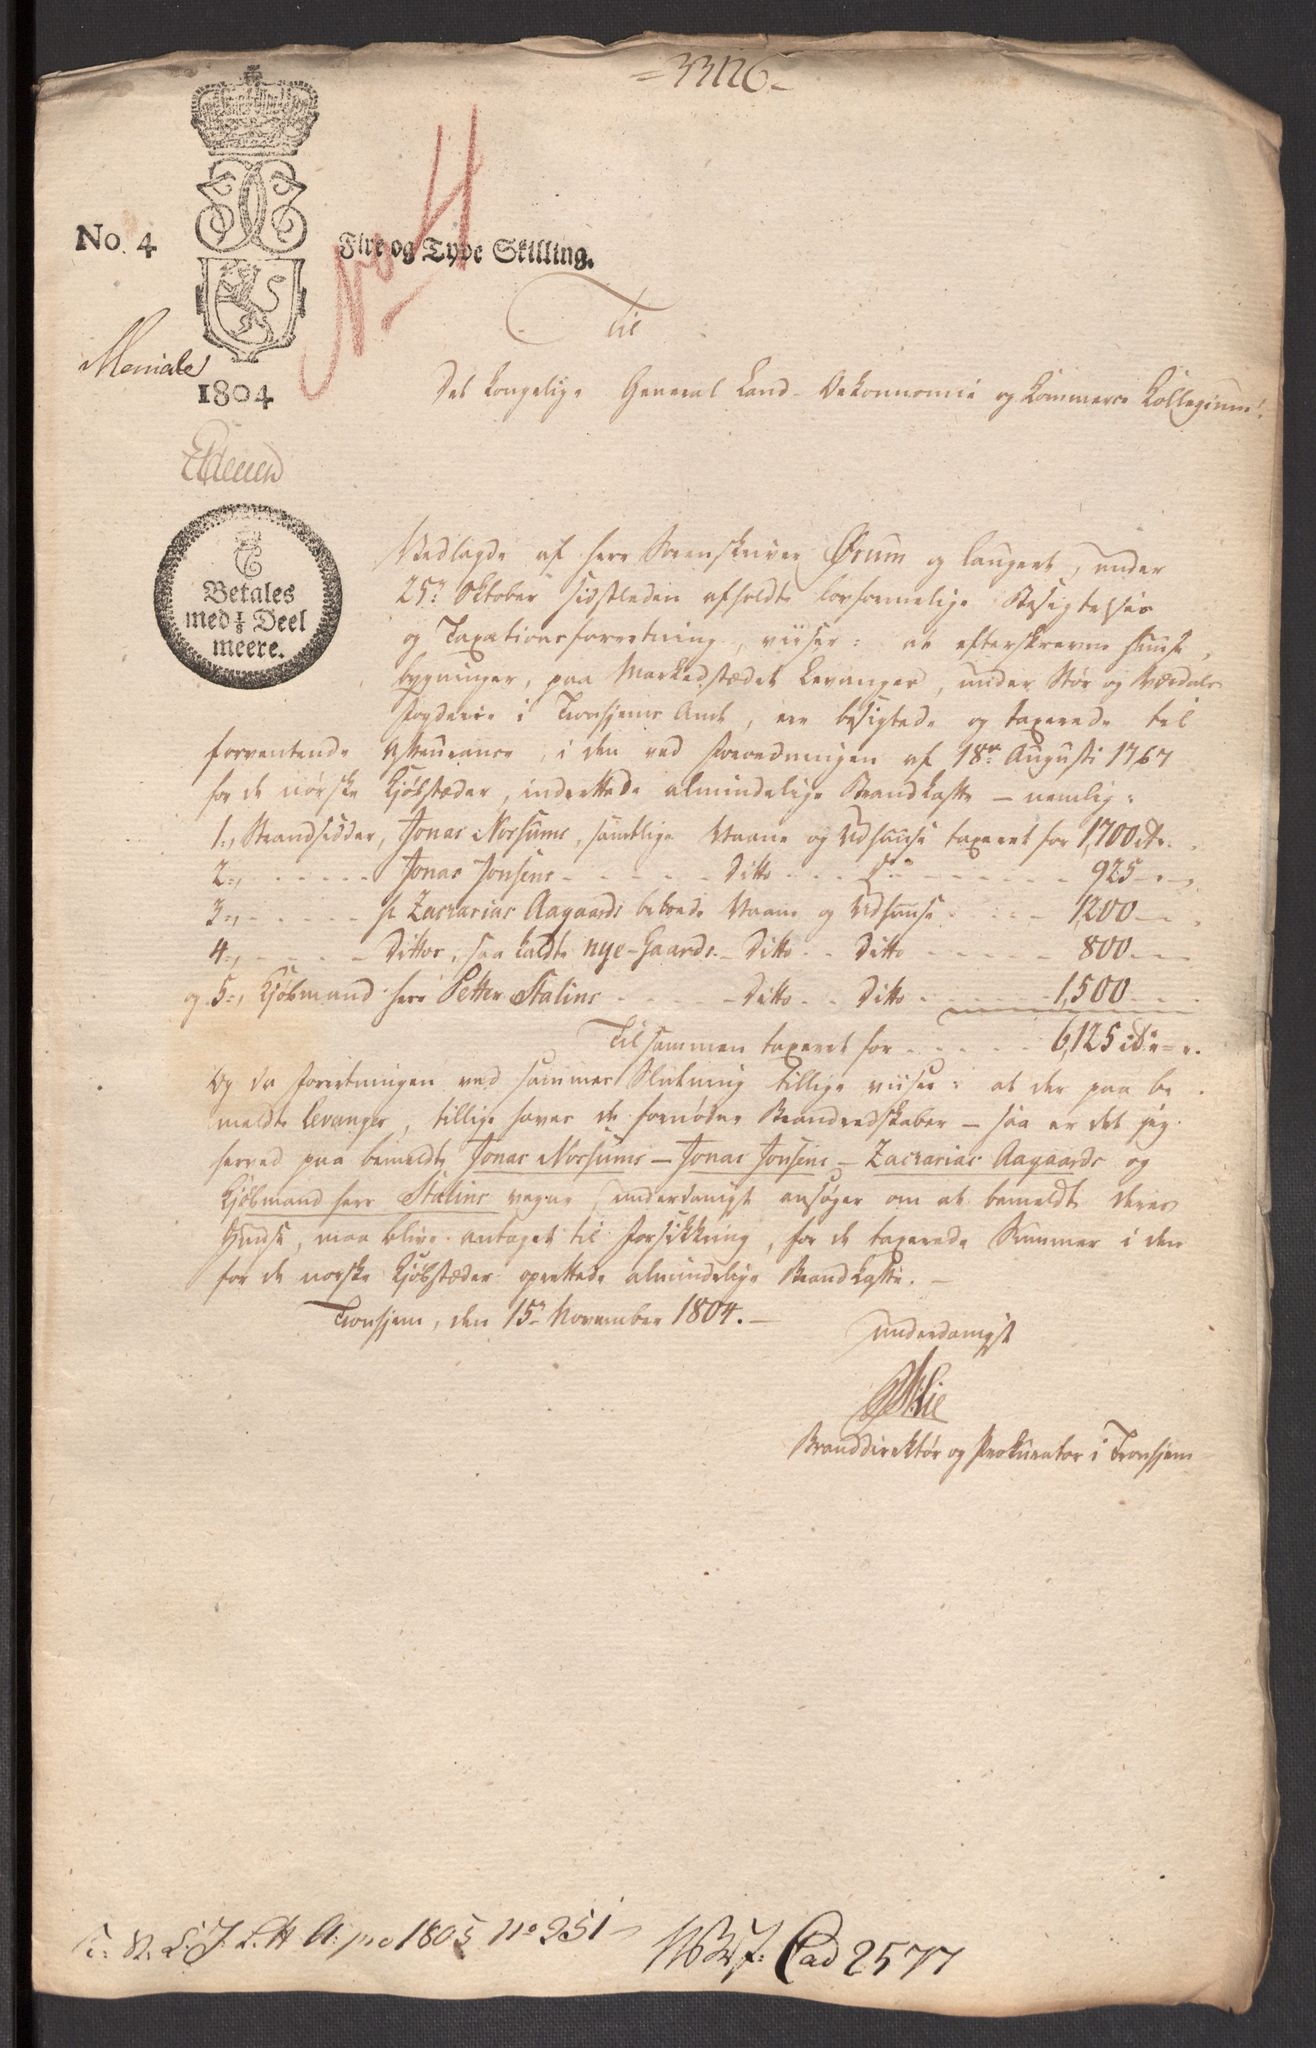 =33126-
No. 4
Fire og Tyve Skilling.
No 4
Meniale
1804
Til
Det kongelige General Land-Oekonnomie og Kommerce Kollegium!
Betales
med 1/8 Deel
meere.
Vedlagde af herr Sorenskriver Ørum og laugret, under
25de Oktober sidstleden afholdte lovformelige Besigtelses
og Taxationsforretning, viiser: at efterskrevne huuse,
bygninger, paa Markedstædet Levanger, under Stør og Værdals
Fogderie i Tronhjems Amt, ere besigtede og taxerede til
forventende Assurance, i den ved Forordningen af 18de Augusti 1767
for de nørske Kjøbstæder, indrettede almindelige Brandkasse - nemlig:
1:, Strandsidder, Jonas Norsums, samtlige Vaane og Udhuuse taxeret for 1,700 rdr.
2:, - - - Jonas Jonsens - - - Ditto - - - do - - - 925 - -
3:, - - - hr Zacrarias Aagaards beboede Vaane og Udhuuse - - - 1200 - -
4:, - - - Dittos, saa kaldte nye-Gaards - Ditto - - Ditto - - - 800 - -
og 5:, Kjøbmand herr Petter Stalins - - - Ditto - - Ditto - - - 1,500 - -
Tilsammen taxeret for - - - 6,125 rdr.
Og da Forretningen ved sammes Slutning tillige viiser: at der paa be
meldte Levanger, tillige haves de fornødne Brandredskaber - saa er det jeg
herved paa bemeldte Jonas Norsums - Jonas Jonsens - Zacrarias Aagaards og
Kjøbmand herr Stalins vegne underdanigst ansøger om at bemeldte deres
Huuse, maa blive antaget til Forsikkring, for de taxerede Summer i den
for de norske Kjøbstæder oprettede almindelige Brandkasse. -
Tronhjem, den 15de November 1804. -
underdanigst
Branddirektør og Prokurator i Tronhjem
A: pro 1805 no 951
Cad 2577